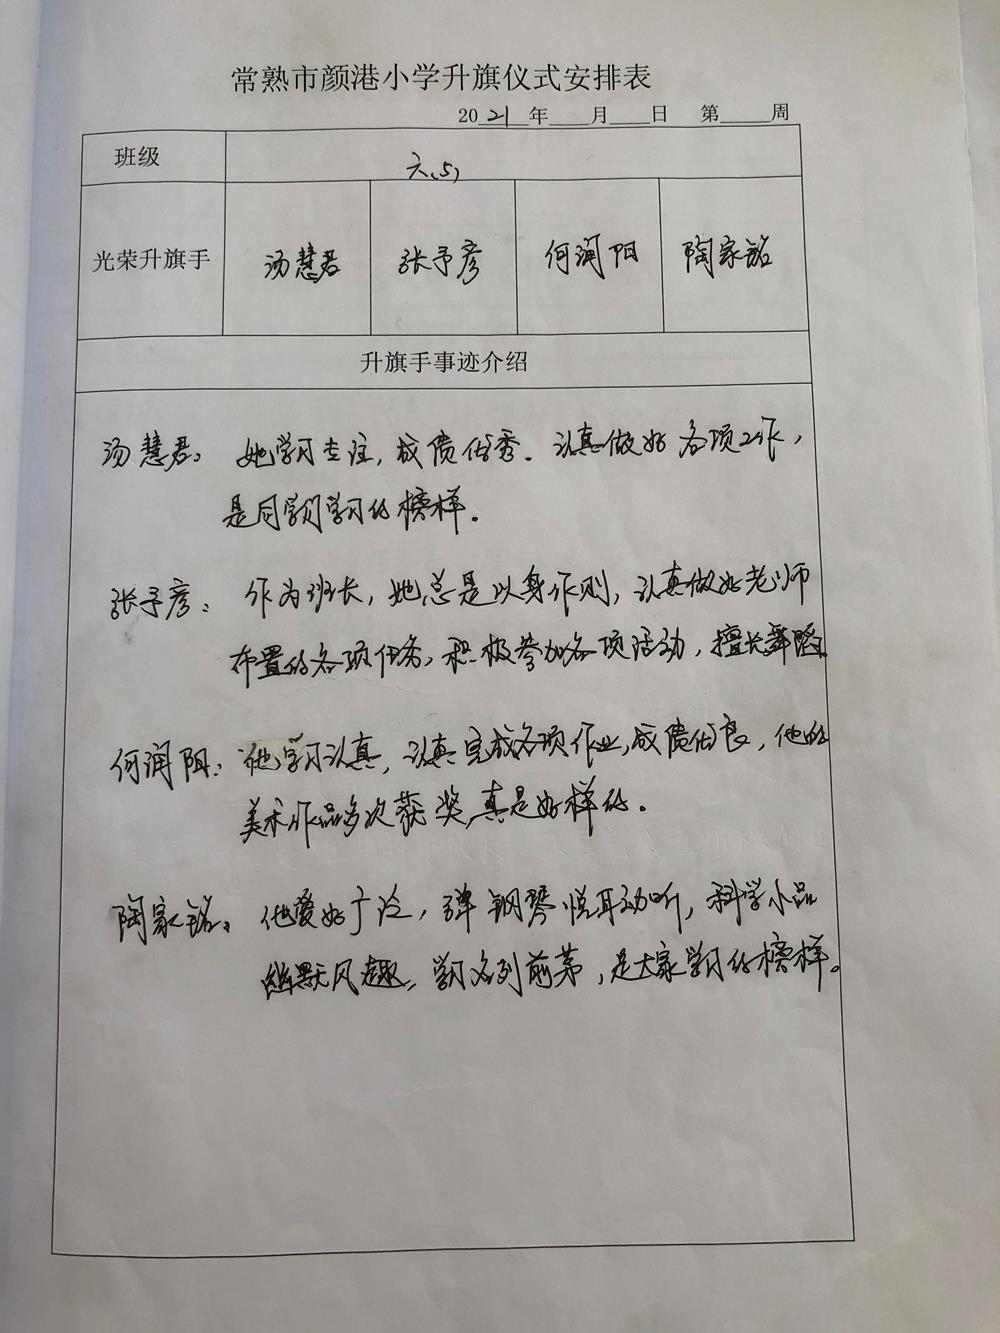 常熟市颜港小学升旗仪式安排表
2021年____月____日 第____周
班级 六(5)
光荣升旗手 汤慧君 张予彦 何润阳 陶家铭
升旗手事迹介绍
汤慧君：她学习专注，成绩优秀。认真做好各项工作，
是同学们学习的榜样。
张予彦：作为班长，她总是以身作则，认真做好老师
布置的各项任务，积极参加各项活动，擅长舞蹈
何润阳：他学习认真，认真完成各项作业，成绩优良，他的
美术作品多次获奖，真是好样的。
陶家铭：他爱好广泛，弹钢琴悦耳动听，科学小品
幽默风趣，学习名列前茅，是大家学习的榜样。